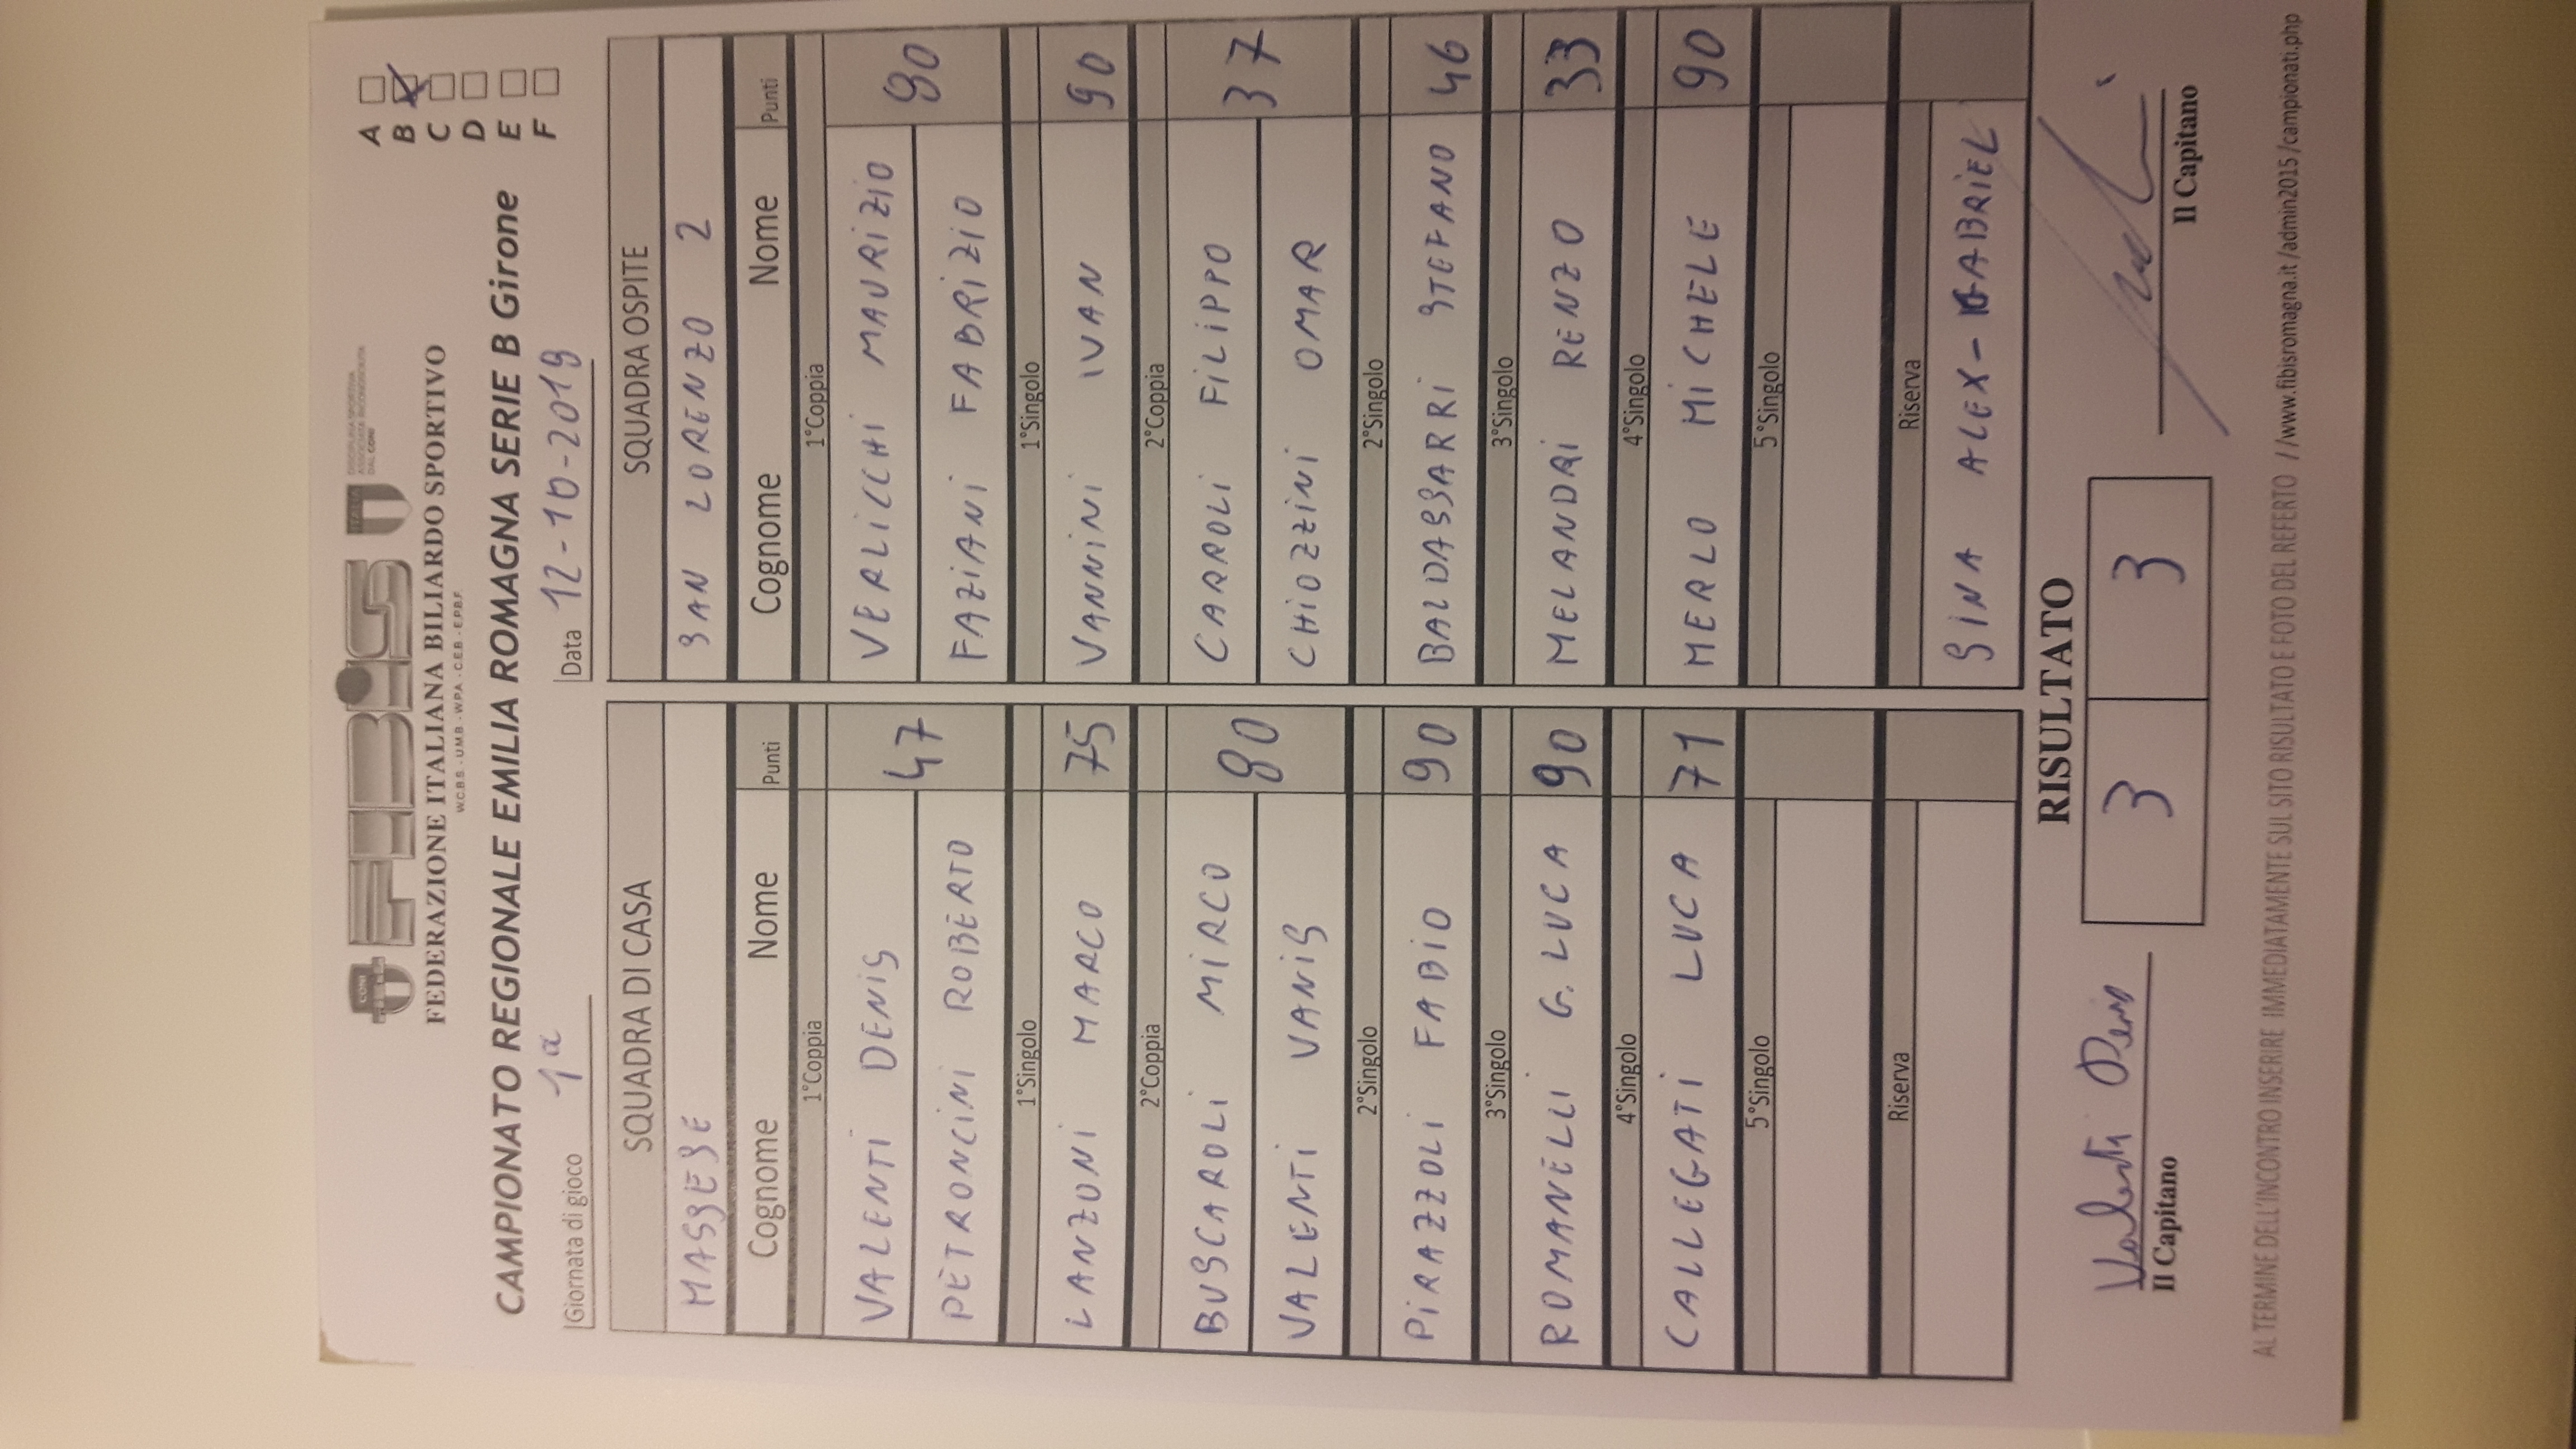 CONI FIBiS ITALIA DISCIPLINA SPORTIVA ASSOCIATA RICONOSCIUTA DAL CONI
FEDERAZIONE ITALIANA BILIARDO SPORTIVO
W.C.B.S. - U.M.B. - W.P.A. - C.E.B. - E.P.B.F.
CAMPIONATO REGIONALE EMILIA ROMAGNA SERIE B Girone
A
B
C
D
E
F
Giornata di gioco 1a Data 12-10-2019
SQUADRA DI CASA
MASSESE
Cognome Nome Punti
1°Coppia
VALENTI DENIS 47
PETRONCINI ROBERTO
1°Singolo
LANZONI MARCO 75
2°Coppia
BUSCAROLI MIRCO 80
VALENTI VANIS
2°Singolo
PIRAZZOLI FABIO 90
3°Singolo
ROMANELLI G. LUCA 90
4°Singolo
CALLEGATI LUCA 71
5°Singolo
Riserva
SQUADRA OSPITE
SAN LORENZO 2
Cognome Nome Punti
1°Coppia
VERLICCHI MAURIZIO 80
FAZIANI FABRIZIO
1°Singolo
VANNINI IVAN 90
2°Coppia
CARROLI FILIPPO 37
CHIOZZINI OMAR
2°Singolo
BALDASSARRI STEFANO 46
3°Singolo
MELANDRI RENZO 33
4°Singolo
MERLO MICHELE 90
5°Singolo
Riserva
SINA ALEX-GABRIEL
RISULTATO
3 3
Valenti Denis
Il Capitano
Il Capitano
AL TERMINE DELL'INCONTRO INSERIRE IMMEDIATAMENTE SUL SITO RISULTATO E FOTO DEL REFERTO //www.fibisromagna.it/admin2015/campionati.php